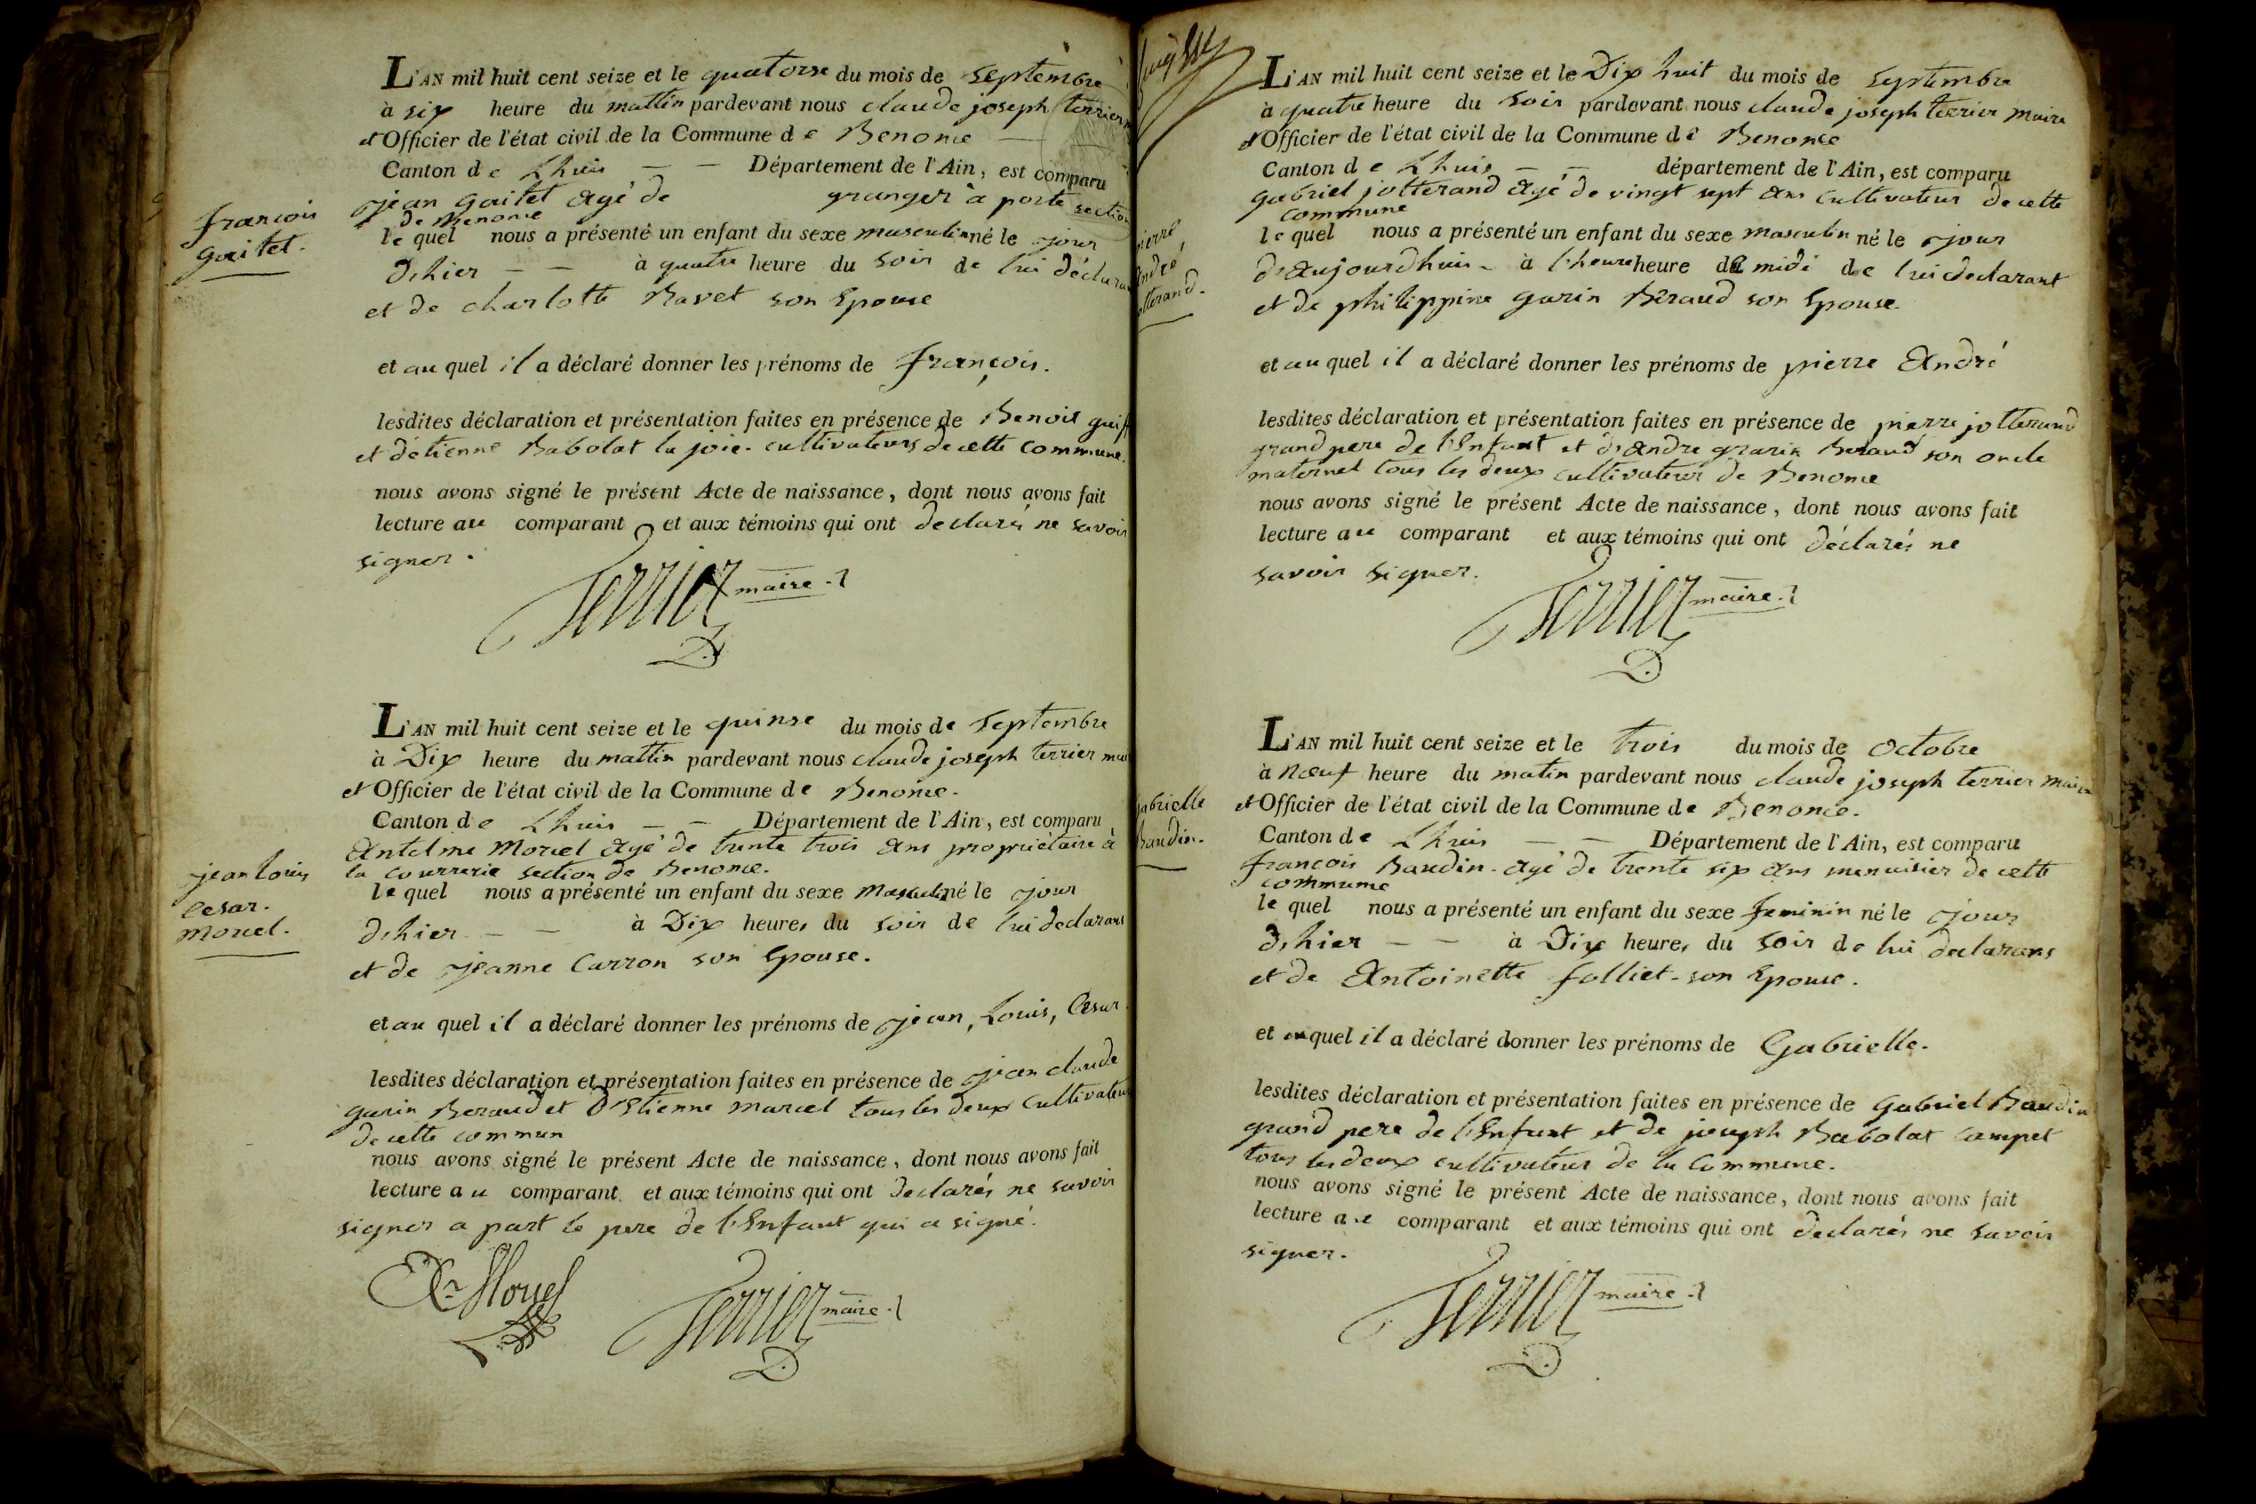 L'AN mil huit cent seize et le quatorse du mois de septembre
à six heure du mattin pardevant nous claude joseph terrier
et Officier de l'état civil de la Commune de Benonce
Canton de Lhuis — — Département de l'Ain, est comparu
jean goitet agé de granger à porte section
de Benonce
françois
goitet.
le quel nous a présenté un enfant du sexe masculin né le jour
d'hier — — à quatre heure du soir de lui déclarant
et de charlotte Ravet son Epouse
et au quel il a déclaré donner les prénoms de françois.
lesdites déclaration et présentation faites en présence de Benoit
et d'étienne Babolat la joie. cultivateurs de cette commune.
nous avons signé le présent Acte de naissance, dont nous avons fait
lecture au comparant et aux témoins qui ont declarés ne savoir
signer.
Terrier maire.
L'AN mil huit cent seize et le quinse du mois de septembre
à Dix heure du mattin pardevant nous claude joseph terrier
et Officier de l'état civil de la Commune de Benonce.
Canton de Lhuis — — Département de l'Ain, est comparu
Antelme Morel agé de trente trois ans propriétaire à
la courrerie section de Benonce.
jean louis
Cesar.
morel.
le quel nous a présenté un enfant du sexe Masculin né le jour
d'hier — — à Dix heures du soir de lui declarans
et de jeanne Carron son Epouse.
et au quel il a déclaré donner les prénoms de jean, Louis, Cesar
lesdites déclaration et présentation faites en présence de jean claude
garin Beraud et d'Etienne marcel tous les deux cultivateurs
de cette commun
nous avons signé le présent Acte de naissance, dont nous avons fait
lecture au comparant et aux témoins qui ont declarés ne savoir
signer a part le pere de l'Enfant qui a signé.
Morel
Terrier maire.
L'AN mil huit cent seize et le Dix huit du mois de septembre
à quatre heure du soir pardevant nous claude joseph terrier maire
et Officier de l'état civil de la Commune de Benonce
Canton de Lhuis — — département de l'Ain, est comparu
gabriel jotterand agé de vingt sept ans cultivateur de cette
commune
pierre,
andré
jotterand.
le quel nous a présenté un enfant du sexe masculin né le jour
d'aujourdhui - à l'heure heure de midi de lui declarant
et de philippine garin Béraud son Epouse.
et au quel il a déclaré donner les prénoms de pierre André
lesdites déclaration et présentation faites en présence de pierre jotterand
grand pere de l'Enfant et d'Andre garin Beraud son oncle
maternel tous les deux cultivateur de Benonce
nous avons signé le présent Acte de naissance, dont nous avons fait
lecture au comparant et aux témoins qui ont déclarés ne
savoir signer.
Terrier maire.
L'AN mil huit cent seize et le trois du mois de octobre
à nœuf heure du matin pardevant nous claude joseph terrier maire
et Officier de l'état civil de la Commune de Benonce.
Canton de Lhuis — — Département de l'Ain, est comparu
françois Baudin. agé de trente six ans menuisier de cette
commune
gabrielle
Baudin.
le quel nous a présenté un enfant du sexe feminin né le jour
d'hier — — à Dix heures du soir de lui declarans
et de Antoinette folliet. son Epouse.
et au quel il a déclaré donner les prénoms de Gabrielle.
lesdites déclaration et présentation faites en présence de gabriel Baudin
grand pere de l'Enfant et de joseph Babolat campet
tous les deux cultivateur de la Commune.
nous avons signé le présent Acte de naissance, dont nous avons fait
lecture au comparant et aux témoins qui ont declarés ne savoir
signer.
Terrier maire.